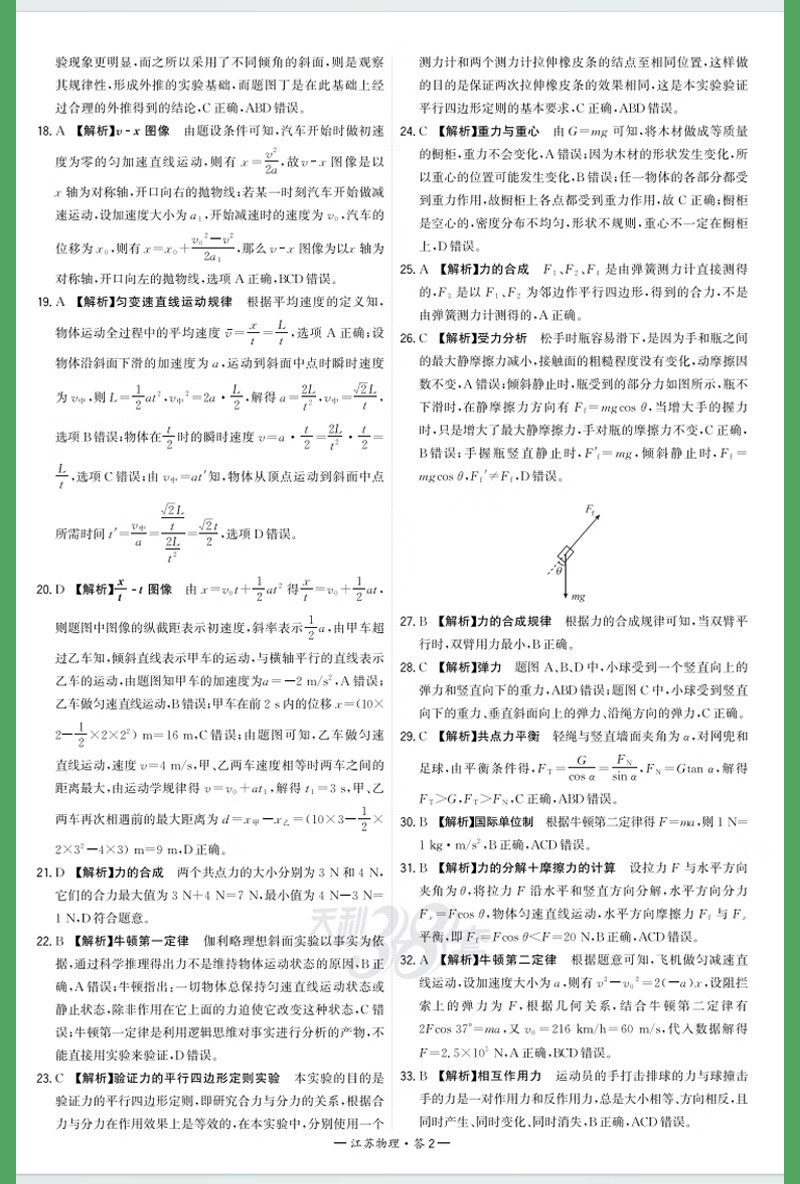 验现象更明显,而之所以采用了不同倾角的斜面,则是观察
其规律性,形成外推的实验基础,而题图丁是在此基础上经
过合理的外推得到的结论,C正确,ABD错误。
18. A 【解析】v-x 图像 由题设条件可知,汽车开始时做初速
度为零的匀加速直线运动,则有 x=v²/2a,故 v-x 图像是以
x 轴为对称轴,开口向右的抛物线;若某一时刻汽车开始做减
速运动,设加速度大小为 a₁,开始减速时的速度为 v₀,汽车的
位移为 x₀,则有 x=x₀+(v₀²-v²)/2a₁,那么 v-x 图像为以x 轴为
对称轴,开口向左的抛物线,选项 A 正确,BCD错误。
19. A 【解析】匀变速直线运动规律 根据平均速度的定义知,
物体运动全过程中的平均速度 v̄=x/t=L/t,选项 A 正确;设
物体沿斜面下滑的加速度为 a,运动到斜面中点时瞬时速度
为 v中,则 L=1/2 at²,v中²=2a·L/2,解得 a=2L/t²,v中=√2L/t,
选项 B错误;物体在 t/2 时的瞬时速度 v=a·t/2=2L/t²·t/2=
L/t,选项 C 错误;由 v中=at′知,物体从顶点运动到斜面中点
所需时间 t′=v中/a=(√2L/t)/(2L/t²)=√2t/2,选项 D错误。
20. D 【解析】x/t-t 图像 由 x=v₀t+1/2 at² 得 x/t=v₀+1/2 at,
则题图中图像的纵截距表示初速度,斜率表示 1/2 a,由甲车超
过乙车知,倾斜直线表示甲车的运动,与横轴平行的直线表示
乙车的运动,由题图知甲车的加速度为a=-2 m/s²,A 错误;
乙车做匀速直线运动,B错误;甲车在前 2 s内的位移 x=(10×
2-1/2×2×2²) m=16 m,C错误;由题图可知,乙车做匀速
直线运动,速度 v=4 m/s,甲、乙两车速度相等时两车之间的
距离最大,由运动学规律得 v=v₀+at₁,解得 t₁=3 s,甲、乙
两车再次相遇前的最大距离为 d=x甲-x乙=(10×3-1/2×
2×3²-4×3) m=9 m,D正确。
21. D 【解析】力的合成 两个共点力的大小分别为 3 N 和 4 N,
它们的合力最大值为 3 N+4 N=7 N,最小值为 4 N-3 N=
1 N,D符合题意。
22. B 【解析】牛顿第一定律 伽利略理想斜面实验以事实为依
据,通过科学推理得出力不是维持物体运动状态的原因,B正
确,A错误;牛顿指出:一切物体总保持匀速直线运动状态或
静止状态,除非作用在它上面的力迫使它改变这种状态,C错
误;牛顿第一定律是利用逻辑思维对事实进行分析的产物,不
能直接用实验来验证,D错误。
23. C 【解析】验证力的平行四边形定则实验 本实验的目的是
验证力的平行四边形定则,即研究合力与分力的关系,根据合
力与分力在作用效果上是等效的,在本实验中,分别使用一个
测力计和两个测力计拉伸橡皮条的结点至相同位置,这样做
的目的是保证两次拉伸橡皮条的效果相同,这是本实验验证
平行四边形定则的基本要求,C正确,ABD错误。
24. C 【解析】重力与重心 由 G=mg 可知,将木材做成等质量
的橱柜,重力不会变化,A错误;因为木材的形状发生变化,所
以重心的位置可能发生变化,B错误;任一物体的各部分都受
到重力作用,故橱柜上各点都受到重力作用,故 C 正确;橱柜
是空心的,密度分布不均匀,形状不规则,重心不一定在橱柜
上,D错误。
25. A 【解析】力的合成 F₁、F₂、F₄ 是由弹簧测力计直接测得
的,F₃ 是以 F₁、F₂ 为邻边作平行四边形,得到的合力,不是
由弹簧测力计测得的,A正确。
26. C 【解析】受力分析 松手时瓶容易滑下,是因为手和瓶之间
的最大静摩擦力减小,接触面的粗糙程度没有变化,动摩擦因
数不变,A错误;倾斜静止时,瓶受到的部分力如图所示,瓶不
下滑时,在静摩擦力方向有 Ff=mgcos θ,当增大手的握力
时,只是增大了最大静摩擦力,手对瓶的摩擦力不变,C正确,
B错误;手握瓶竖直静止时,F′f=mg,倾斜静止时,Ff=
mgcos θ,Ff′≠Ff,D错误。
Ff
θ
mg
27. B 【解析】力的合成规律 根据力的合成规律可知,当双臂平
行时,双臂用力最小,B正确。
28. C 【解析】弹力 题图 A、B、D中,小球受到一个竖直向上的
弹力和竖直向下的重力,ABD错误;题图 C 中,小球受到竖直
向下的重力、垂直斜面向上的弹力、沿绳方向的弹力,C正确。
29. C 【解析】共点力平衡 轻绳与竖直墙面夹角为 α,对网兜和
足球,由平衡条件得,FT=G/cos α=FN/sin α,FN=Gtan α,解得
FT>G,FT>FN,C正确,ABD错误。
30. B 【解析】国际单位制 根据牛顿第二定律得 F=ma,则 1 N=
1 kg·m/s²,B正确,ACD错误。
31. B 【解析】力的分解+摩擦力的计算 设拉力 F 与水平方向
夹角为 θ,将拉力 F 沿水平和竖直方向分解,水平方向分力
Fx=Fcos θ,物体匀速直线运动,水平方向摩擦力 Ff 与 Fx
平衡,即 Ff=Fcos θ<F=20 N,B正确,ACD错误。
32. A 【解析】牛顿第二定律 根据题意可知,飞机做匀减速直
线运动,设加速度大小为 a,则有 v²-v₀²=2(-a)x,设阻拦
索上的弹力为 F,根据几何关系,结合牛顿第二定律有
2Fcos 37°=ma,又 v₀=216 km/h=60 m/s,代入数据解得
F=2.5×10⁵ N,A 正确,BCD错误。
33. B 【解析】相互作用力 运动员的手打击排球的力与球撞击
手的力是一对作用力和反作用力,总是大小相等、方向相反,且
同时产生、同时变化、同时消失,B正确,ACD错误。
天利38套
— 江苏物理·答 2 —